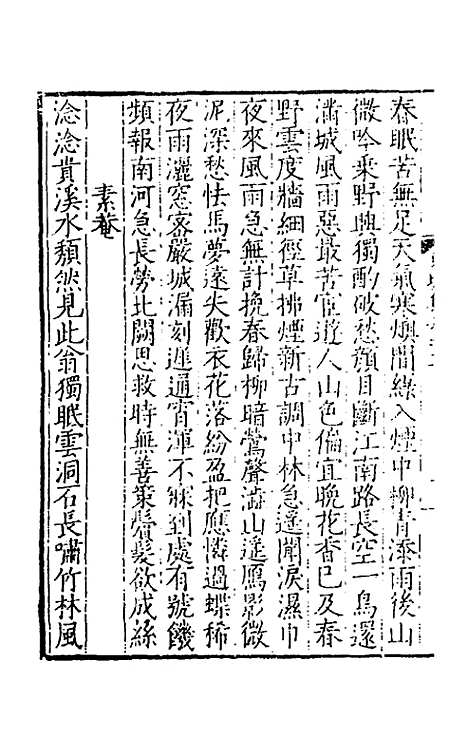 春眠苦無足天氣寒燠間綠入煙中柳青添雨後山
微吟乗野興獨酌破愁顔目斷江南路長空一鳥還
滿城風雨惡最苦宦遊人山色偏宜晚花香已及春
野雲度牆細徑草拂煙新古調中林急遙聞淚濕巾
夜來風雨急無計挽春歸柳暗鶯聲澁山遙鴈影微
泥深愁怯馬夢遠失歡衣花落紛盈把應憐過蝶稀
夜雨灑窓密嚴城漏刻遲通宵渾不寐到處有號饑
頻報南河急長勞北闕思救時無善策鬢髮欲成絲
素菴
淰淰貴溪水頽然見此翁獨眠雲洞石長嘯竹林風